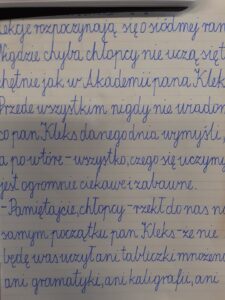 ekcje rozpoczynają się o siódmej ran
Nigdzie chyba chłopcy nie uczą się t
chętnie jak w Akademii pana Kleks
Przede wszystkim nigdy nie wiadom
co pan Kleks danego dnia wymyśli,
a po wtóre - wszystko, czego się uczymy
jest ogromnie ciekawe i zabawne.
- Pamiętajcie, chłopcy - rzekł do nas n
samym początku pan Kleks - że nie
będę was uczył ani tabliczki mnożeni
ani gramatyki, ani kaligrafii, ani